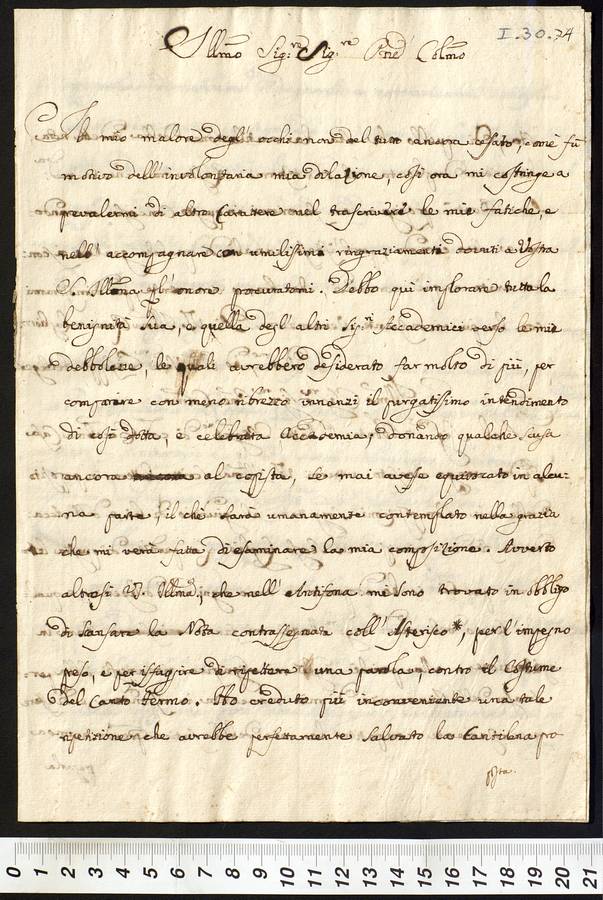 I.30.74
Illmo Sig.r Sig.re Pne Colmo
Il mio malore degl'occhi non del tutto ancora cessato, come fu
motivo dell'involontaria mia dilazione, così ora mi costringe a
prevalermi di altro Carattere nel trascrivere le mie fatiche, e
nell'accompagnare con umilissimi ringraziamenti dovuti a Vostra
Sig. Illma l'onore procuratomi. Debbo qui implorare tutta la
benignità sua, e quella degl'altri Sig.ri Accademici verso le mie
debbolezze, le quali avrebbero desiderato far molto di più, per
comparire con meno ribrezzo innanzi il purgatissimo intendimento
di così dotta, e celebrata Accademia, donando qualche scusa
ancora al copista, se mai avesse equivocato in alcu-
na parte, il che sarà umanamente contemplato nella grazia
che mi verrà fatta, di esaminare la mia composizione. Avverto
altresì V.S. Illma, che nell'Antifona mi sono trovato in obbligo
di scansare la Nota contrassegnata coll'Asterisco *, per l'impegno
preso, e per isfuggire di ripettere una parola, contro il Costume
del Canto fermo. Ho creduto più inconveniente una tale
ripetizione che avrebbe perfettamente salvato la Cantilena pro
posta.
0 1 2 3 4 5 6 7 8 9 10 11 12 13 14 15 16 17 18 19 20 21